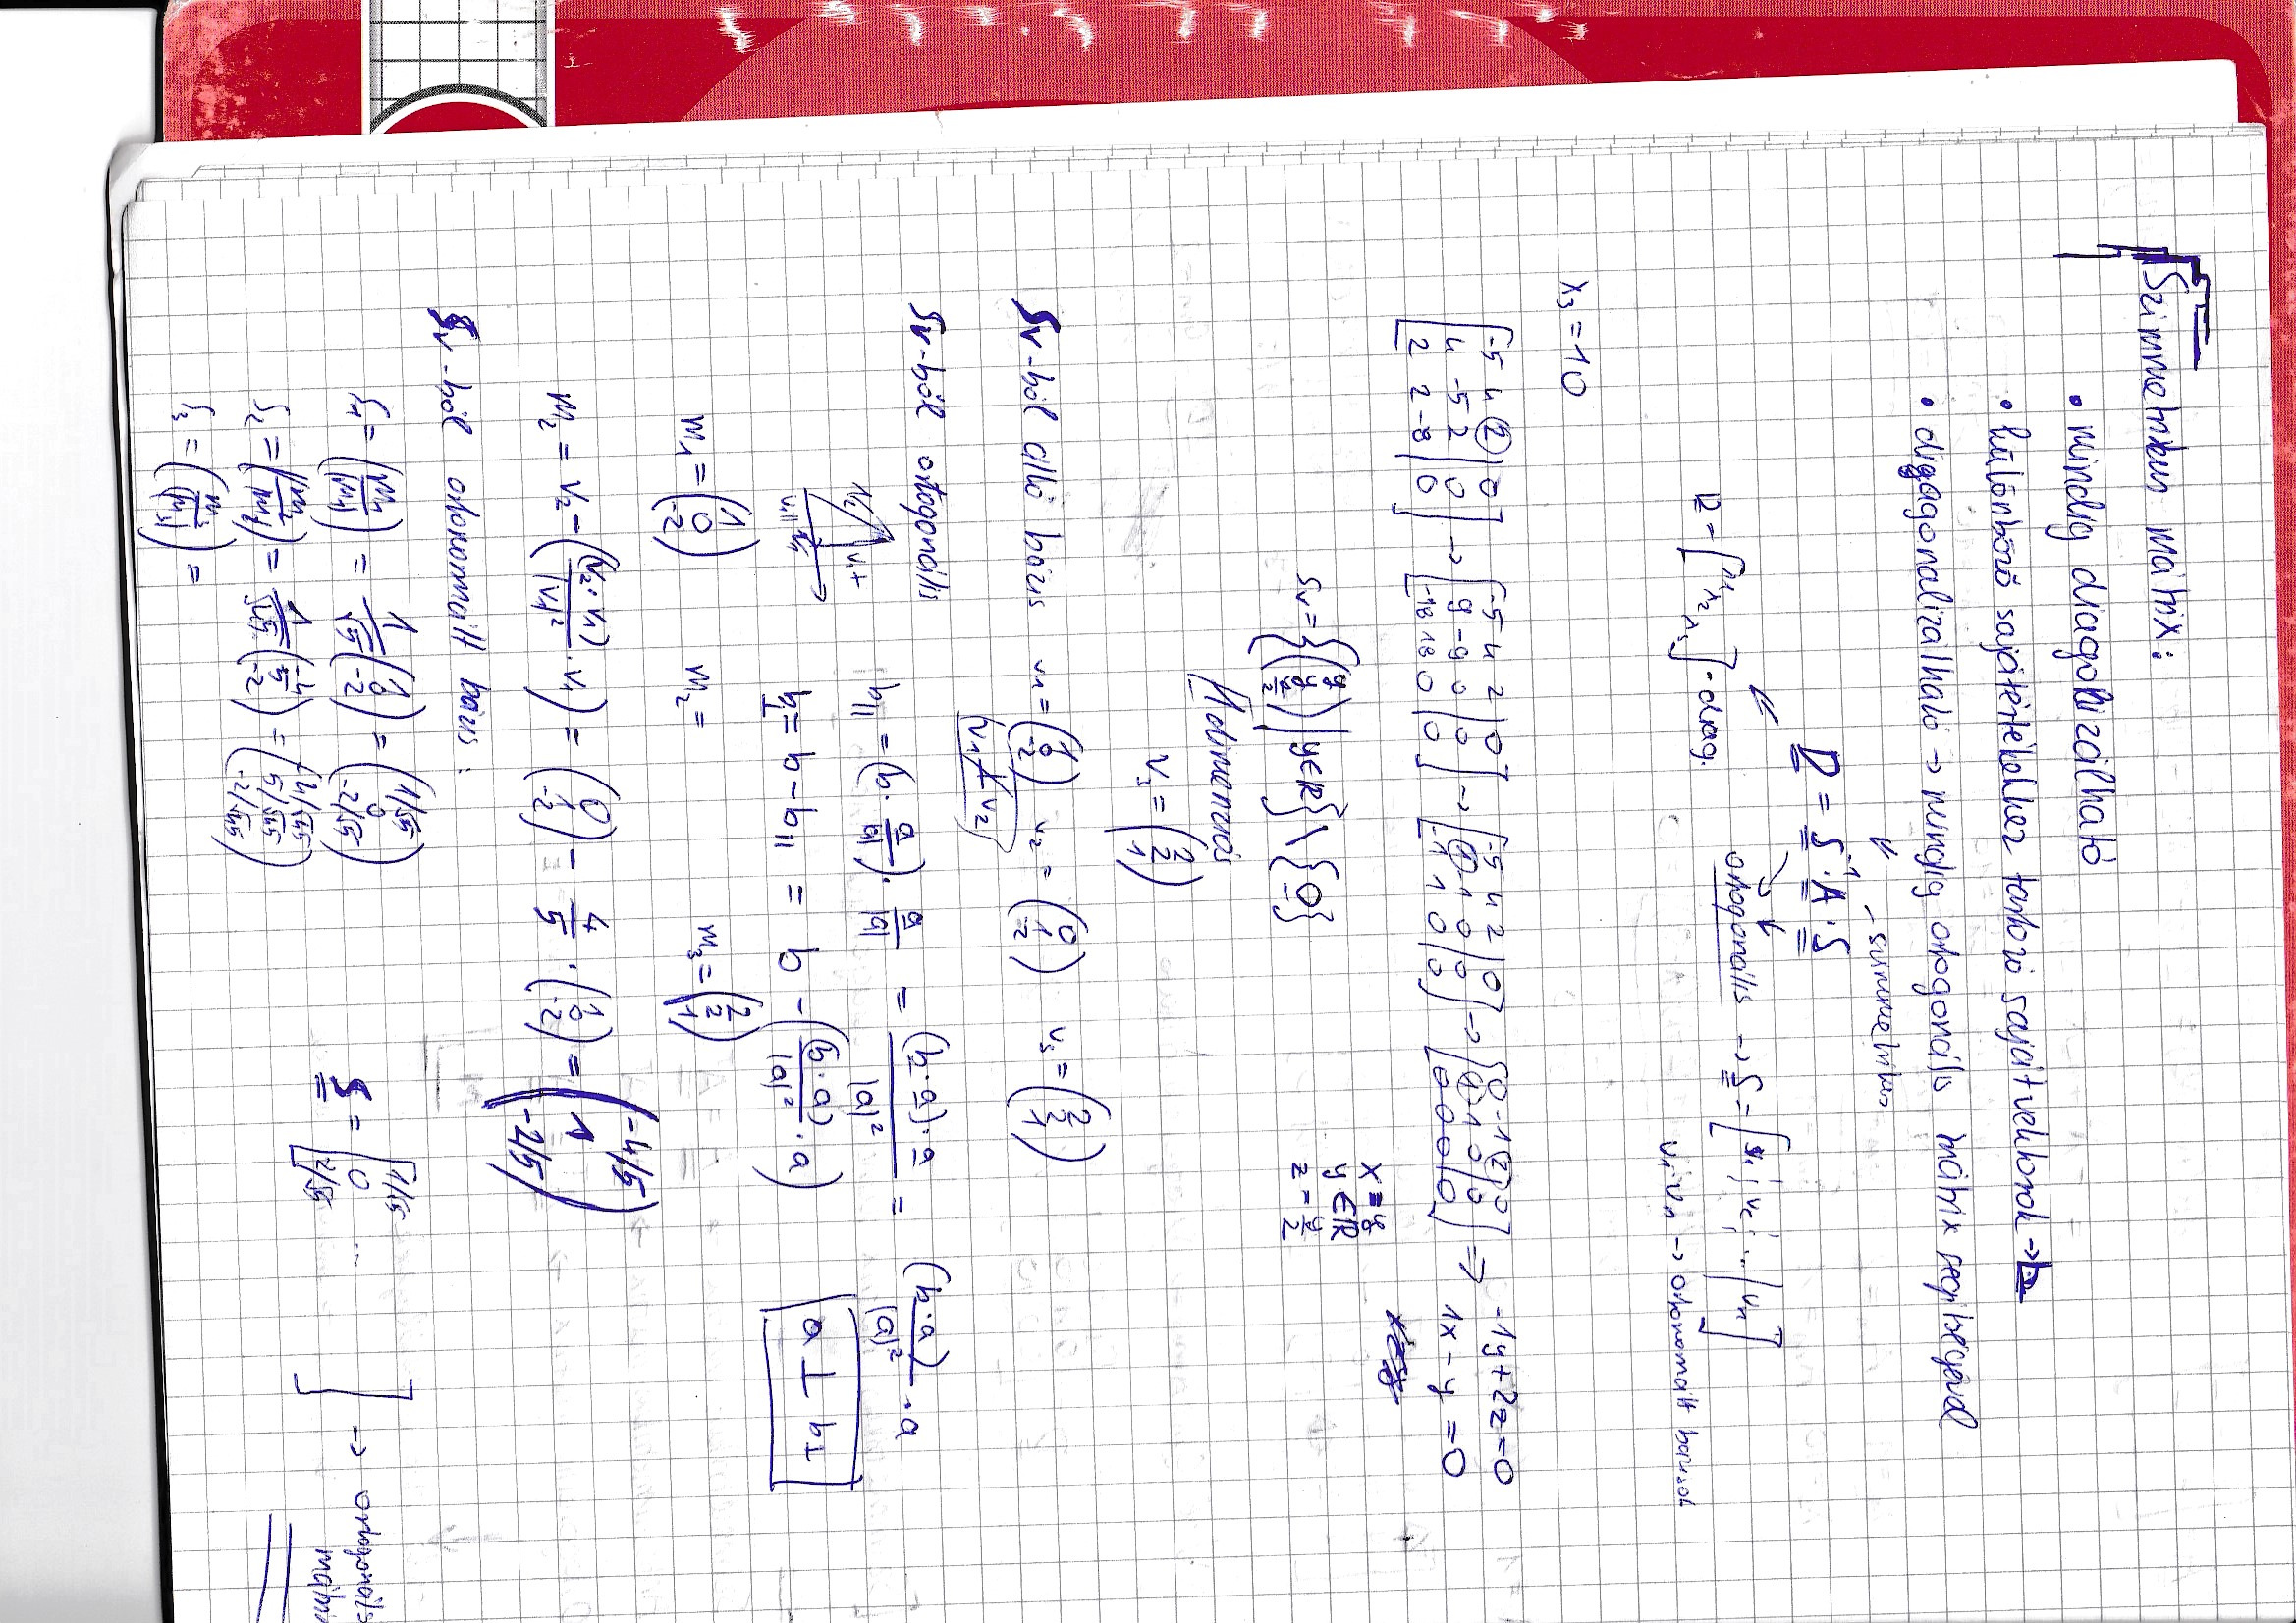 Szimmetrikus mátrix:
• mindig diagolizálható
• különböző sajátértékekhez tartozó sajátvektorok →
• diagonalizálható → mindig ortogonális mátrix segítségével
- szimmetrikus
D = S⁻¹ · A · S
ortogonális → S = [v₁ ¦ v₂ ¦ ... | vₙ]
D = [λ₁ λ₂ λ₃] - diag.
v₁..vₙ → ortonormált bázisok
λ₃ = 10
[-5 4 2 | 0] → [-5 4 2 | 0] → [-5 4 2 | 0] → [0 -1 2 | 0] ⇒ -1y+2z=0
[4 -5 2 | 0] [9 -9 0 | 0] [1 -1 0 | 0] [1 -1 0 | 0] 1x - y = 0
[2 2 -8 | 0] [-18 18 0 | 0] [-1 1 0 | 0] [0 0 0 | 0]
x = y
y ∈ ℝ
z = y/2
Sv = {(y y y/2) | y∈ℝ} \ {0}
1 dimenziós
v₃ = (2 2 1)
Sv-ből álló bázis v₁ = (1 0 -2) v₂ = (0 1 -2) v₃ = (2 2 1)
(v₁ ⊥̸ v₂)
Sv-ből ortogonális
b∥ = (b · a/|a|) · a/|a| = (b·a)·a / |a|² = (b·a)/|a|² · a
b⊥ = b - b∥ = b - ((b·a)/|a|² · a)
a ⊥ b⊥
m₁ = (1 0 -2) m₂ = m₃ = (2 2 1)
m₂ = v₂ - ((v₂·v₁)/|v₁|² · v₁) = (0 1 -2) - 4/5 · (1 0 -2) = (-4/5 1 -2/5)
Sv-ből ortonormált bázis:
s₁ = (m₁/|m₁|) = 1/√5 (1 0 -2) = (1/√5 0 -2/√5)
S = [1/√5 0 2/√5 ...] → ortogonális
s₂ = (m₂/|m₂|) = 1/√45 (-4 5 -2) = (-4/√45 5/√45 -2/√45)
s₃ = (m₃/|m₃|) =